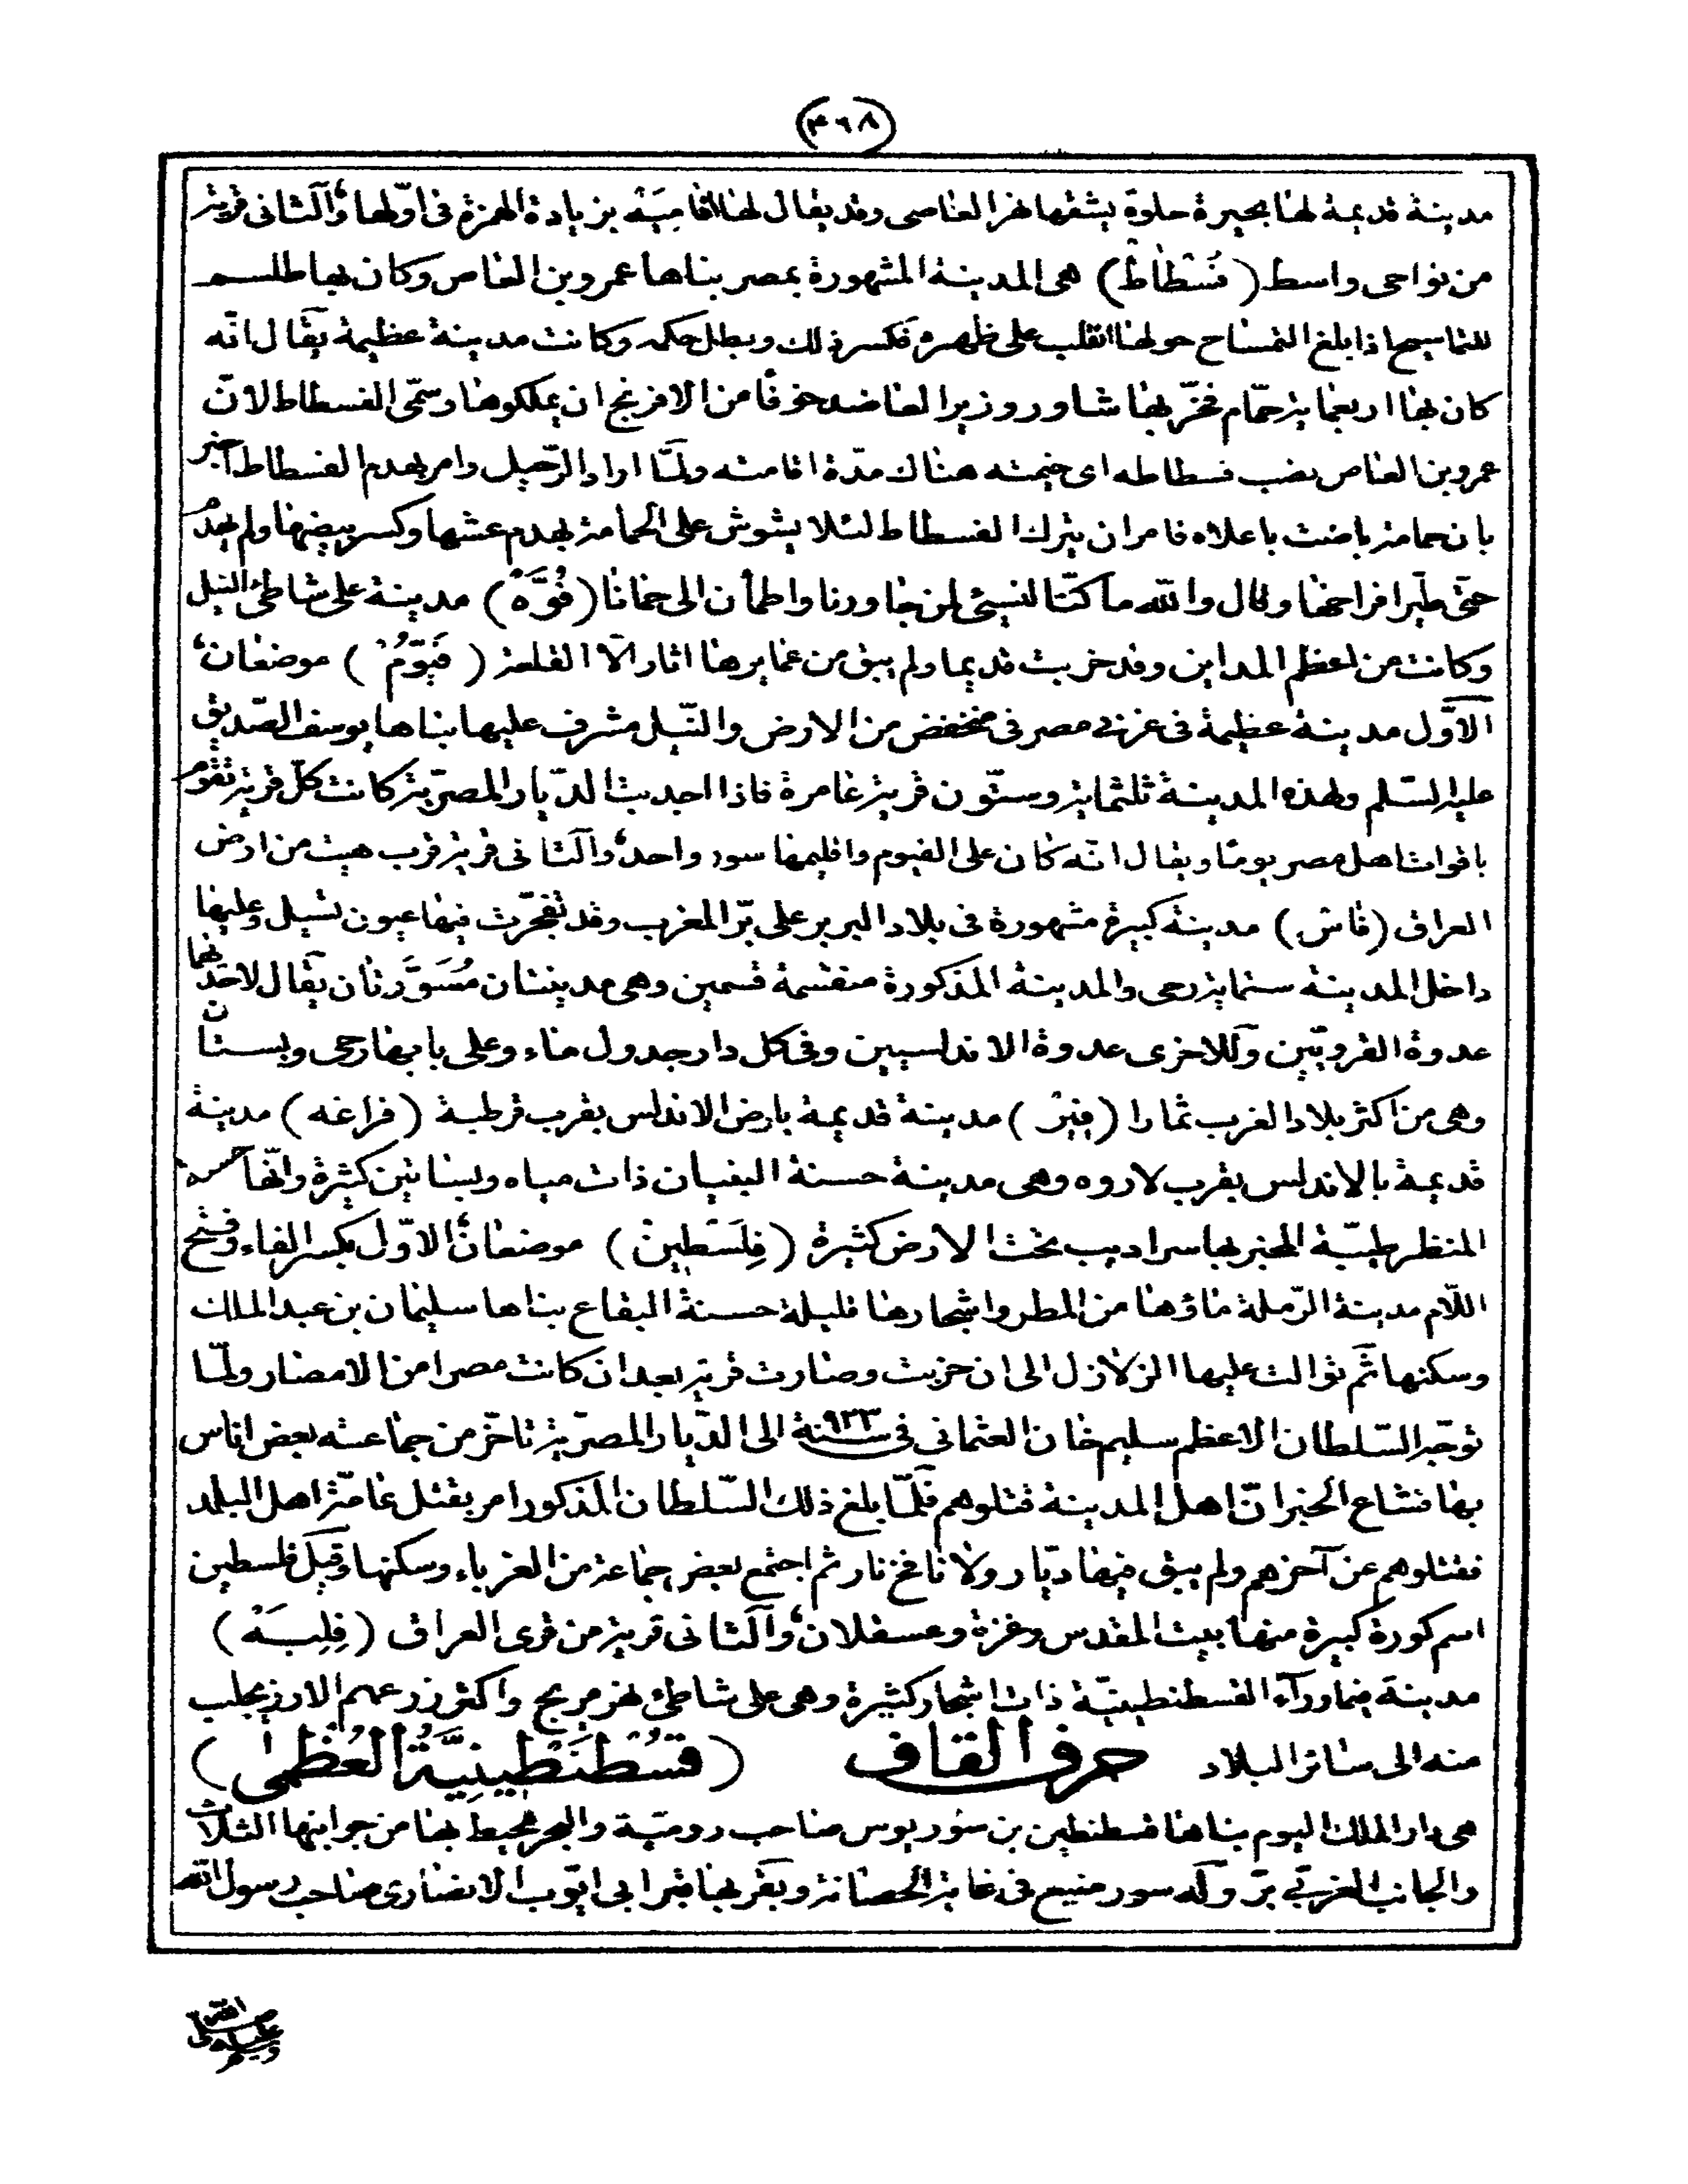 (٤٦٨)
مدينة قديمة لها بحيرة حلوة يشقها نهر العاصى وقد يقال لها افامِيَة بزيادة الهمزة فى اوّلها والثانى قرية
من نواحى واسط (فُسْطَاطْ) هى المدينة المشهورة بمصر بناها عمرو بن العاص وكان بها طلسم
للتماسيح اذا بلغ التمساح حولها انقلب على ظهره فكسر ذلك وبطل حكمه وكانت مدينة عظيمة يقال انّه
كان بها اربعماية حمّام فخرّبها شاور وزير العاضد خوفًا من الافرنج ان يملكوها وسمّى الفسطاط لانّ
عمرو بن العاص نصب فسطاطه اى خيمته هناك مدّة اقامته ولمّا اراد الرّحيل وامر بهدم الفسطاط اخبر
بان حمامة باضت باعلاه فامر ان يترك الفسطاط لئلا يشوش على الحمامة بهدم عشها وكسر بيضها ولم يهدم
حتى طيرا فراخها وقال والله ما كنّا لنسيئ لمن جاورنا واطمأن الى جمانا (فُوَّهْ) مدينة على شاطئ النيل
وكانت من اعظم المداين وقد خربت قديما ولم يبق من عمايرها اثار الّا القلعة (فَيّومُ) موضعان
الاوّل مدينة عظيمة فى غربى مصر فى منخفض من الارض والنّيل مشرف عليها بناها يوسف الصّديق
عليه السّلم ولهذه المدينة ثلثماية وستّون قرية عامرة فاذا اجديت الدّيار المصرّية كانت كلّ قرية تقوم
باقوات اهل مصر يومًا ويقال انّه كان على الفيوم واقليمها سور واحد والثانى قرية قرب هيت من ارض
العراق (فاس) مدينة كبيرة مشهورة فى بلاد البربر على برّ المغرب وقد تفجّرت فيها عيون تسيل وعليها
داخل المدينة ستماية رحى والمدينة المذكورة منقسمة قسمين وهى مدينتان مُسَوَّرتان يقال لاحدٰهما
عدوة القرويّين وللاخرى عدوة الاندلسيين وفى كل دار جدول ماء وعلى بابها رحى وبستان
وهى من اكثر بلاد الغرب ثمارا (فِيَرْ) مدينة قديمة بارض الاندلس بقرب قرطبة (فراغه) مدينة
قديمة بالاندلس بقرب لاروه وهى مدينة حسنة البنيان ذات مياه وبساتين كثيرة وانّها حسنة
المنظر طيبّة المخبر بها سراديب تحت الارض كثيرة (فِلَسْطِين) موضعان الاوّل بكسر الفاء وفتح
اللّام مدينة الرّملة ماؤها من المطر واشجارها قليلة حسنة البقاع بناها سليمان بن عبد الملك
وسكنها ثّم توالت عليها الزلازل الى ان خربت وصارت قرية بعد ان كانت مصرا من الامصار ولمّا
توجّه السّلطان الاعظم سليم خان العثمانى فى سنة ٩٢٣ الى الدّيار المصرّية تاخّر من جماعته بعض اناس
بها فشاع الخبر انّ اهل المدينة قتلوهم فلمّا بلغ ذلك السّلطان المذكور امر بقتل عامّة اهل البلد
فقتلوهم عن آخرهم ولم يبق فيها ديّار ولا نافخ نار ثم اجتمع بعض جماعة من الغرباء وسكنها وقيل فلسطين
اسم كورة كبيرة منها بيت المقدس وغزة وعسقلان والثانى قرية من قرى العراق (فِلِبَهْ)
مدينة فيما ورآء القسطنطينيّة ذات اشجار كثيرة وهى على شاطئ نهر مريج واكثر زرعهم الارز يجلب
منه الى سائر البلاد حرف القاف (قُسْطَنْطِينِيَّةُ العُظْمٰى)
هى دار الملك اليوم بناها قسطنطين بن سوريوس صاحب روميّة والبحر محيط بها من جوانبها الثلاث
والجانب الغربّى برّ وله سور منيع فى غاية الحصانة وبقربها قبر ابى ايّوب الانصارى صاحب رسول الله
صلى الله عليه وسلم